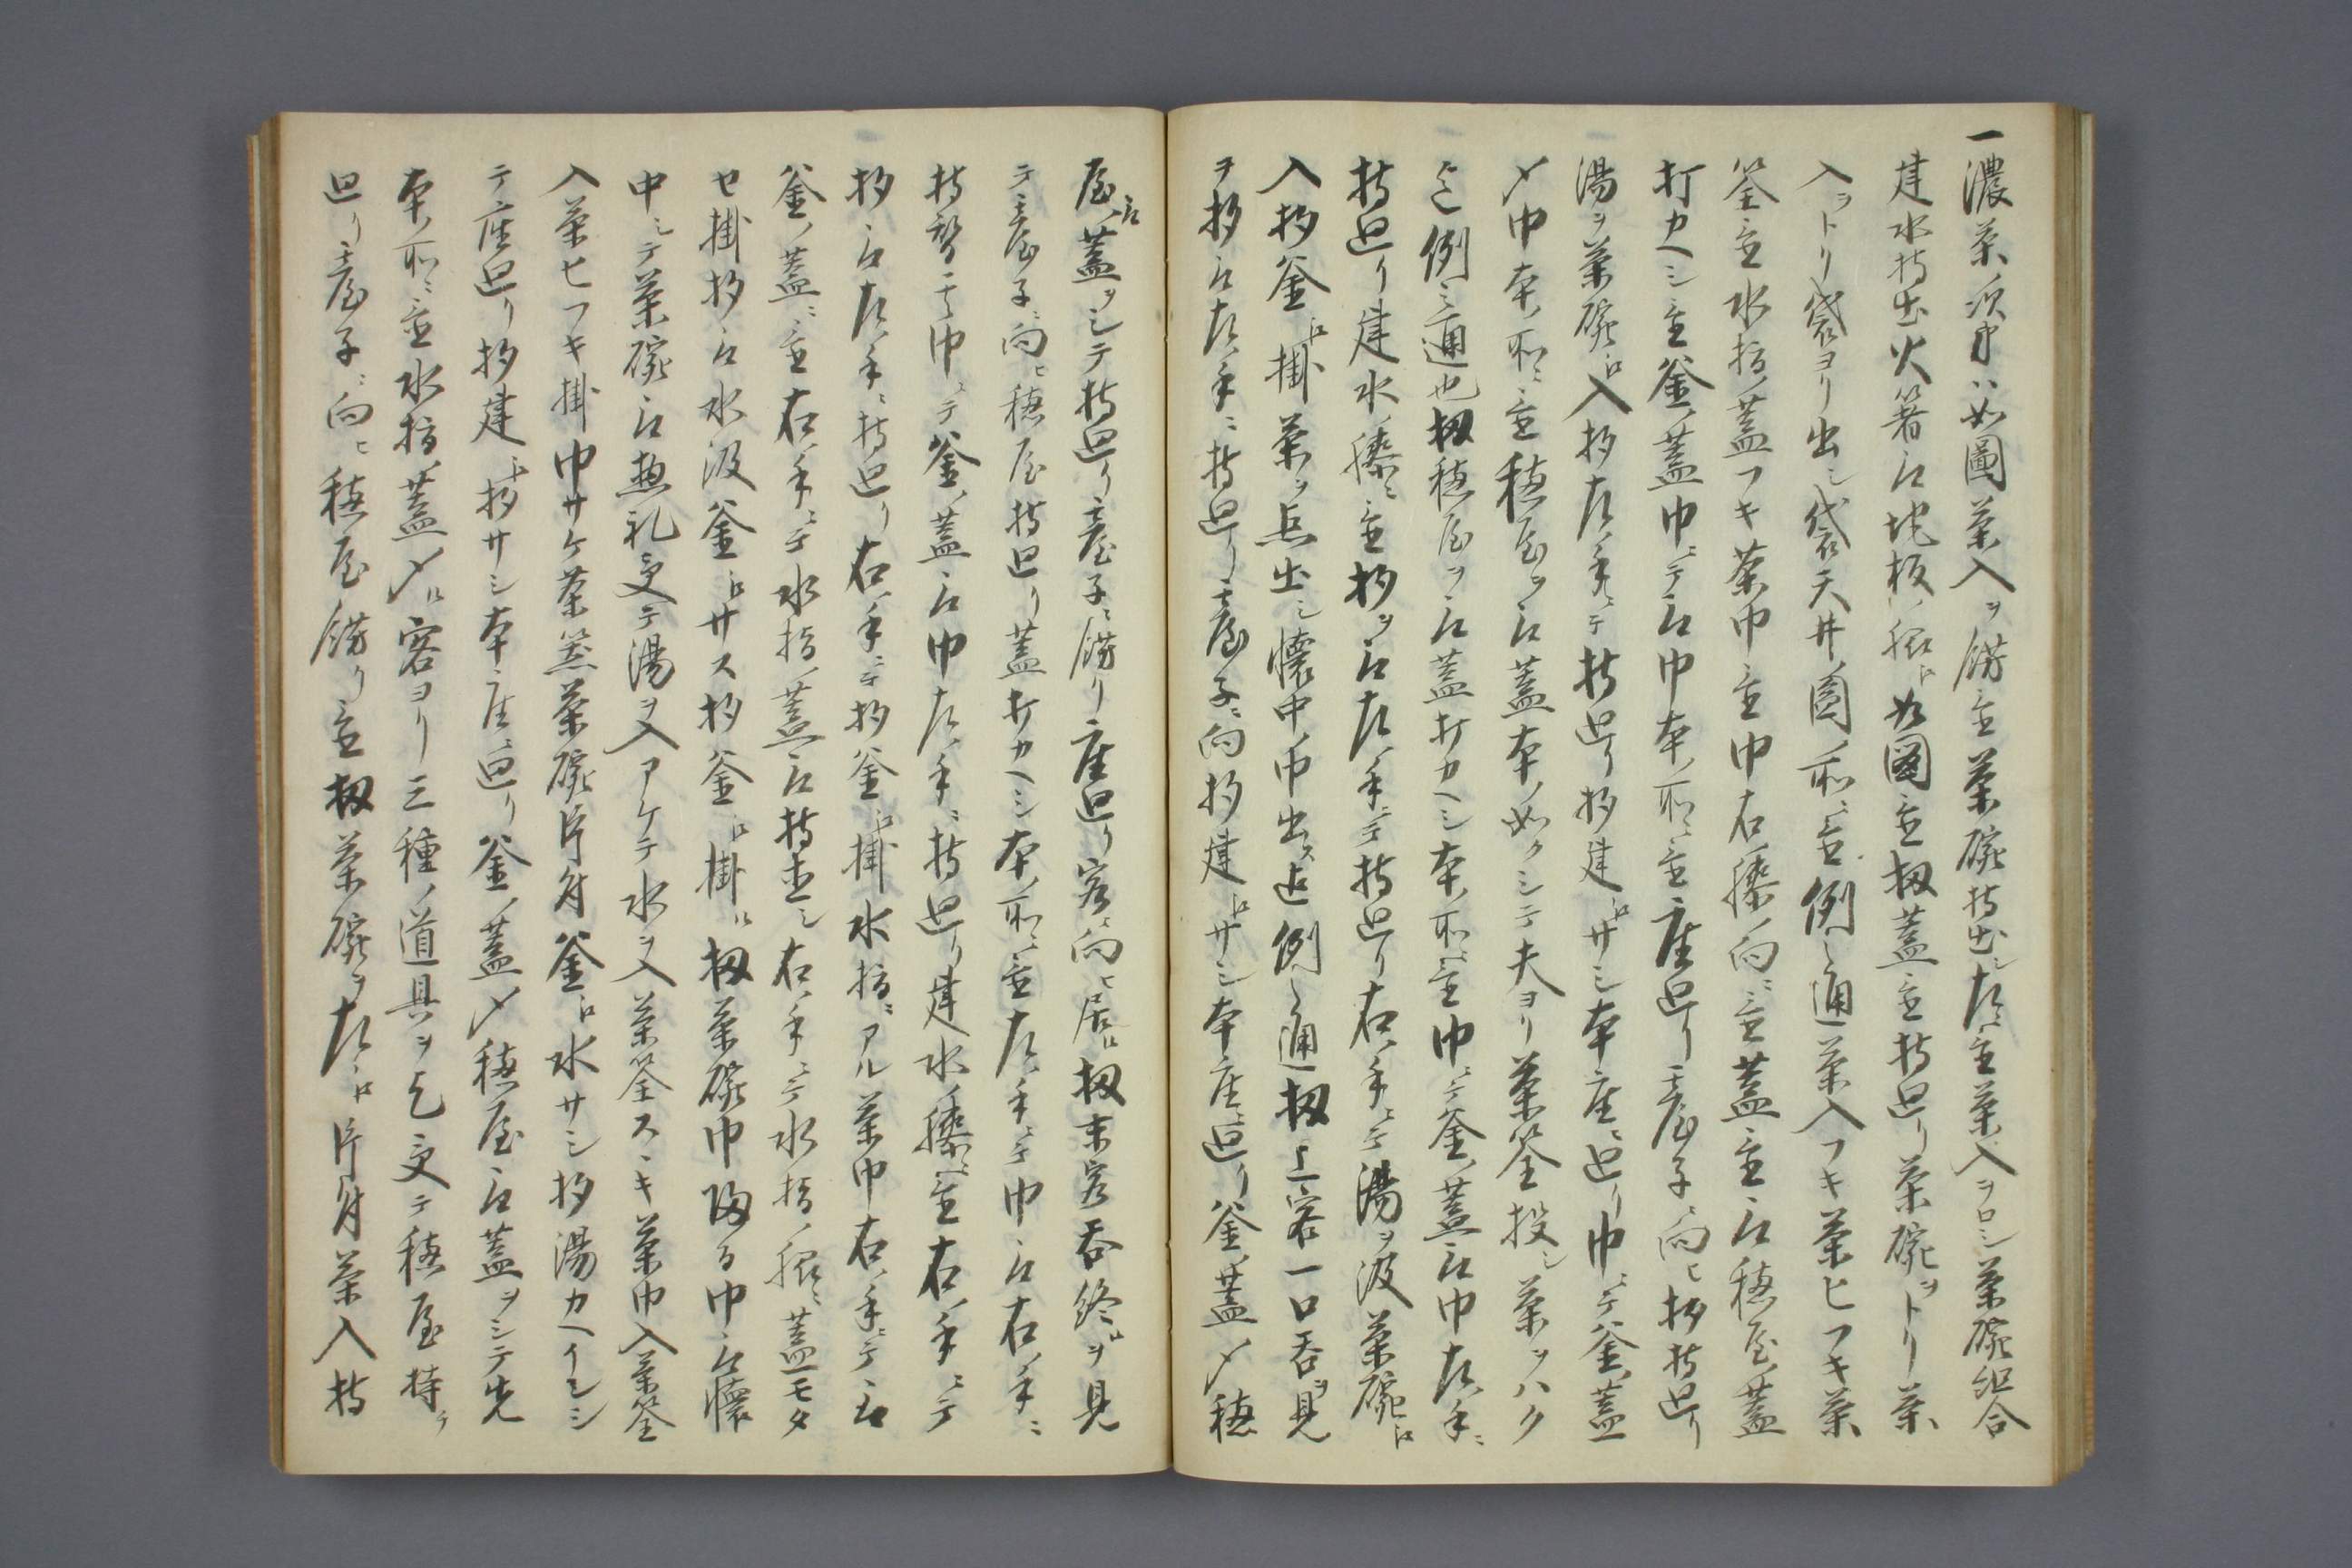 一濃茶次第ハ如圖茶入ヲ餝置茶碗持出シ左ニ置茶入ヲロシ茶碗組合
建水持出火箸取地板ノ脇ニ如図置扨蓋置持廻リ茶碗ヲトリ茶
入ヲトリ袋ヨリ出シ袋天井圖ノ所ニ置例之通茶入フキ茶ヒフキ茶
筌置水指ノ蓋フキ茶巾置巾右ノ膝ノ向ニ置蓋置取穂屋ノ蓋
打カヘシ置釜ノ蓋巾ニテ取巾本ノ所ニ置座廻リ臺子ニ向ヒ杓持廻リ
湯ヲ茶碗ニ入杓左ノ手ニテ持廻リ杓建ニサシ本座ニ廻リ巾ニテ釜ノ蓋
〆巾本ノ所ニ置穂屋ヲ取蓋本ノ如クシテ夫ヨリ茶筌投シ茶ヲハク
迄例之通也扨穂屋ヲ取蓋打カヘシ本ノ所ニ置巾ニテ釜ノ蓋取巾左ノ手ニ
持廻リ建水ノ膝ニ置杓ヲ取左ノ手ニテ持廻リ右ノ手ニテ湯ヲ汲茶碗ニ
入杓釜ニ掛茶ヲ点出シ懐中ノ巾出ス迄例之通扨上客一口呑ヲ見
ヲ杓取左ノ手ニ持廻リ臺子ニ向杓建ニサシ本座ニ廻リ釜ノ蓋〆穂
屋取蓋ヲシテ持廻リ臺子ニ餝リ座廻リ客ニ向ヒ居ル扨末客呑終ルヲ見
テ臺子ニ向ヒ穂屋持廻リ蓋打カヘシ本ノ所ニ置左ノ手ニテ巾取右ノ手ニ
持替ヘ其巾ニテ釜ノ蓋取巾左ノ手ニ持廻リ建水ノ膝ニ置右ノ手ニテ
杓取左ノ手ニ持廻リ右ノ手ニテ杓釜ニ掛水指ニアル茶巾右ノ手ニテ取
釜ノ蓋ニ置右ノ手ニテ水指ノ蓋取持直シ右ノ手ニテ水指ノ脇ニ蓋モタ
セ掛杓取水汲釜ニサス杓釜ニ掛ル扨茶碗巾帰る巾取懐
中シテ茶碗取惣礼受テ湯ヲ入アケテ水ヲ入茶筌スヽキ茶巾入茶筌
入茶ヒフキ掛巾サケ茶筅茶碗片付釜ニ水サシ杓湯カヘイシ
テ座廻リ杓建ニ杓サシ本座ニ廻リ釜ノ蓋〆穂屋取蓋ヲシテ先
本ノ所ニ置水指ノ蓋〆ル客ヨリ三種ノ道具ヲ乞受テ穂屋持テ
廻リ臺子ニ向ヒ穂屋餝リ置扨茶碗ヲ左ニ片付茶入持